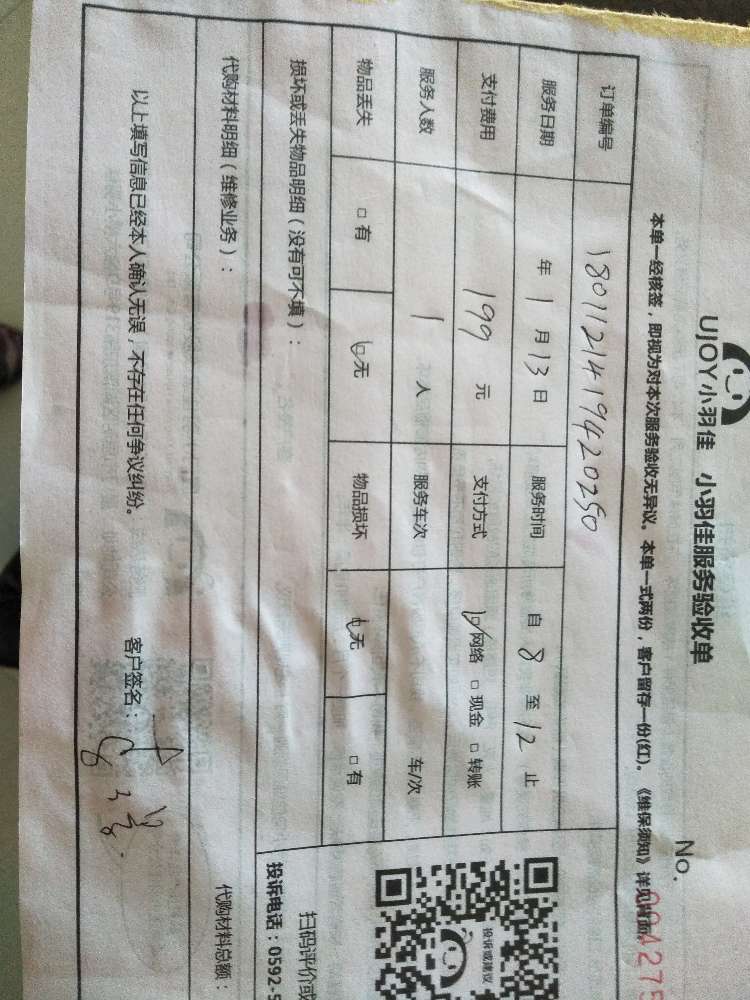 UJOY小羽佳 小羽佳服务验收单
No.
本单一经核签，即视为对本次服务验收无异议。本单一式两份，客户留存一份(红)。《维保须知》详见背面。
订单编号 1801121419420250
服务日期 年 1 月 13 日 服务时间 自 8 至 12 止
支付费用 199 元 支付方式 网络 □ 现金 □ 转账
服务人数 1 人 服务车次 车/次
物品丢失 □ 有 无 物品损坏 无 □ 有
投诉或建议
损坏或丢失物品明细（没有可不填）：
扫码评价或
投诉电话：0592-5
代购材料明细（维修业务）：
代购材料总额：
以上填写信息已经本人确认无误，不存在任何争议纠纷。 客户签名：